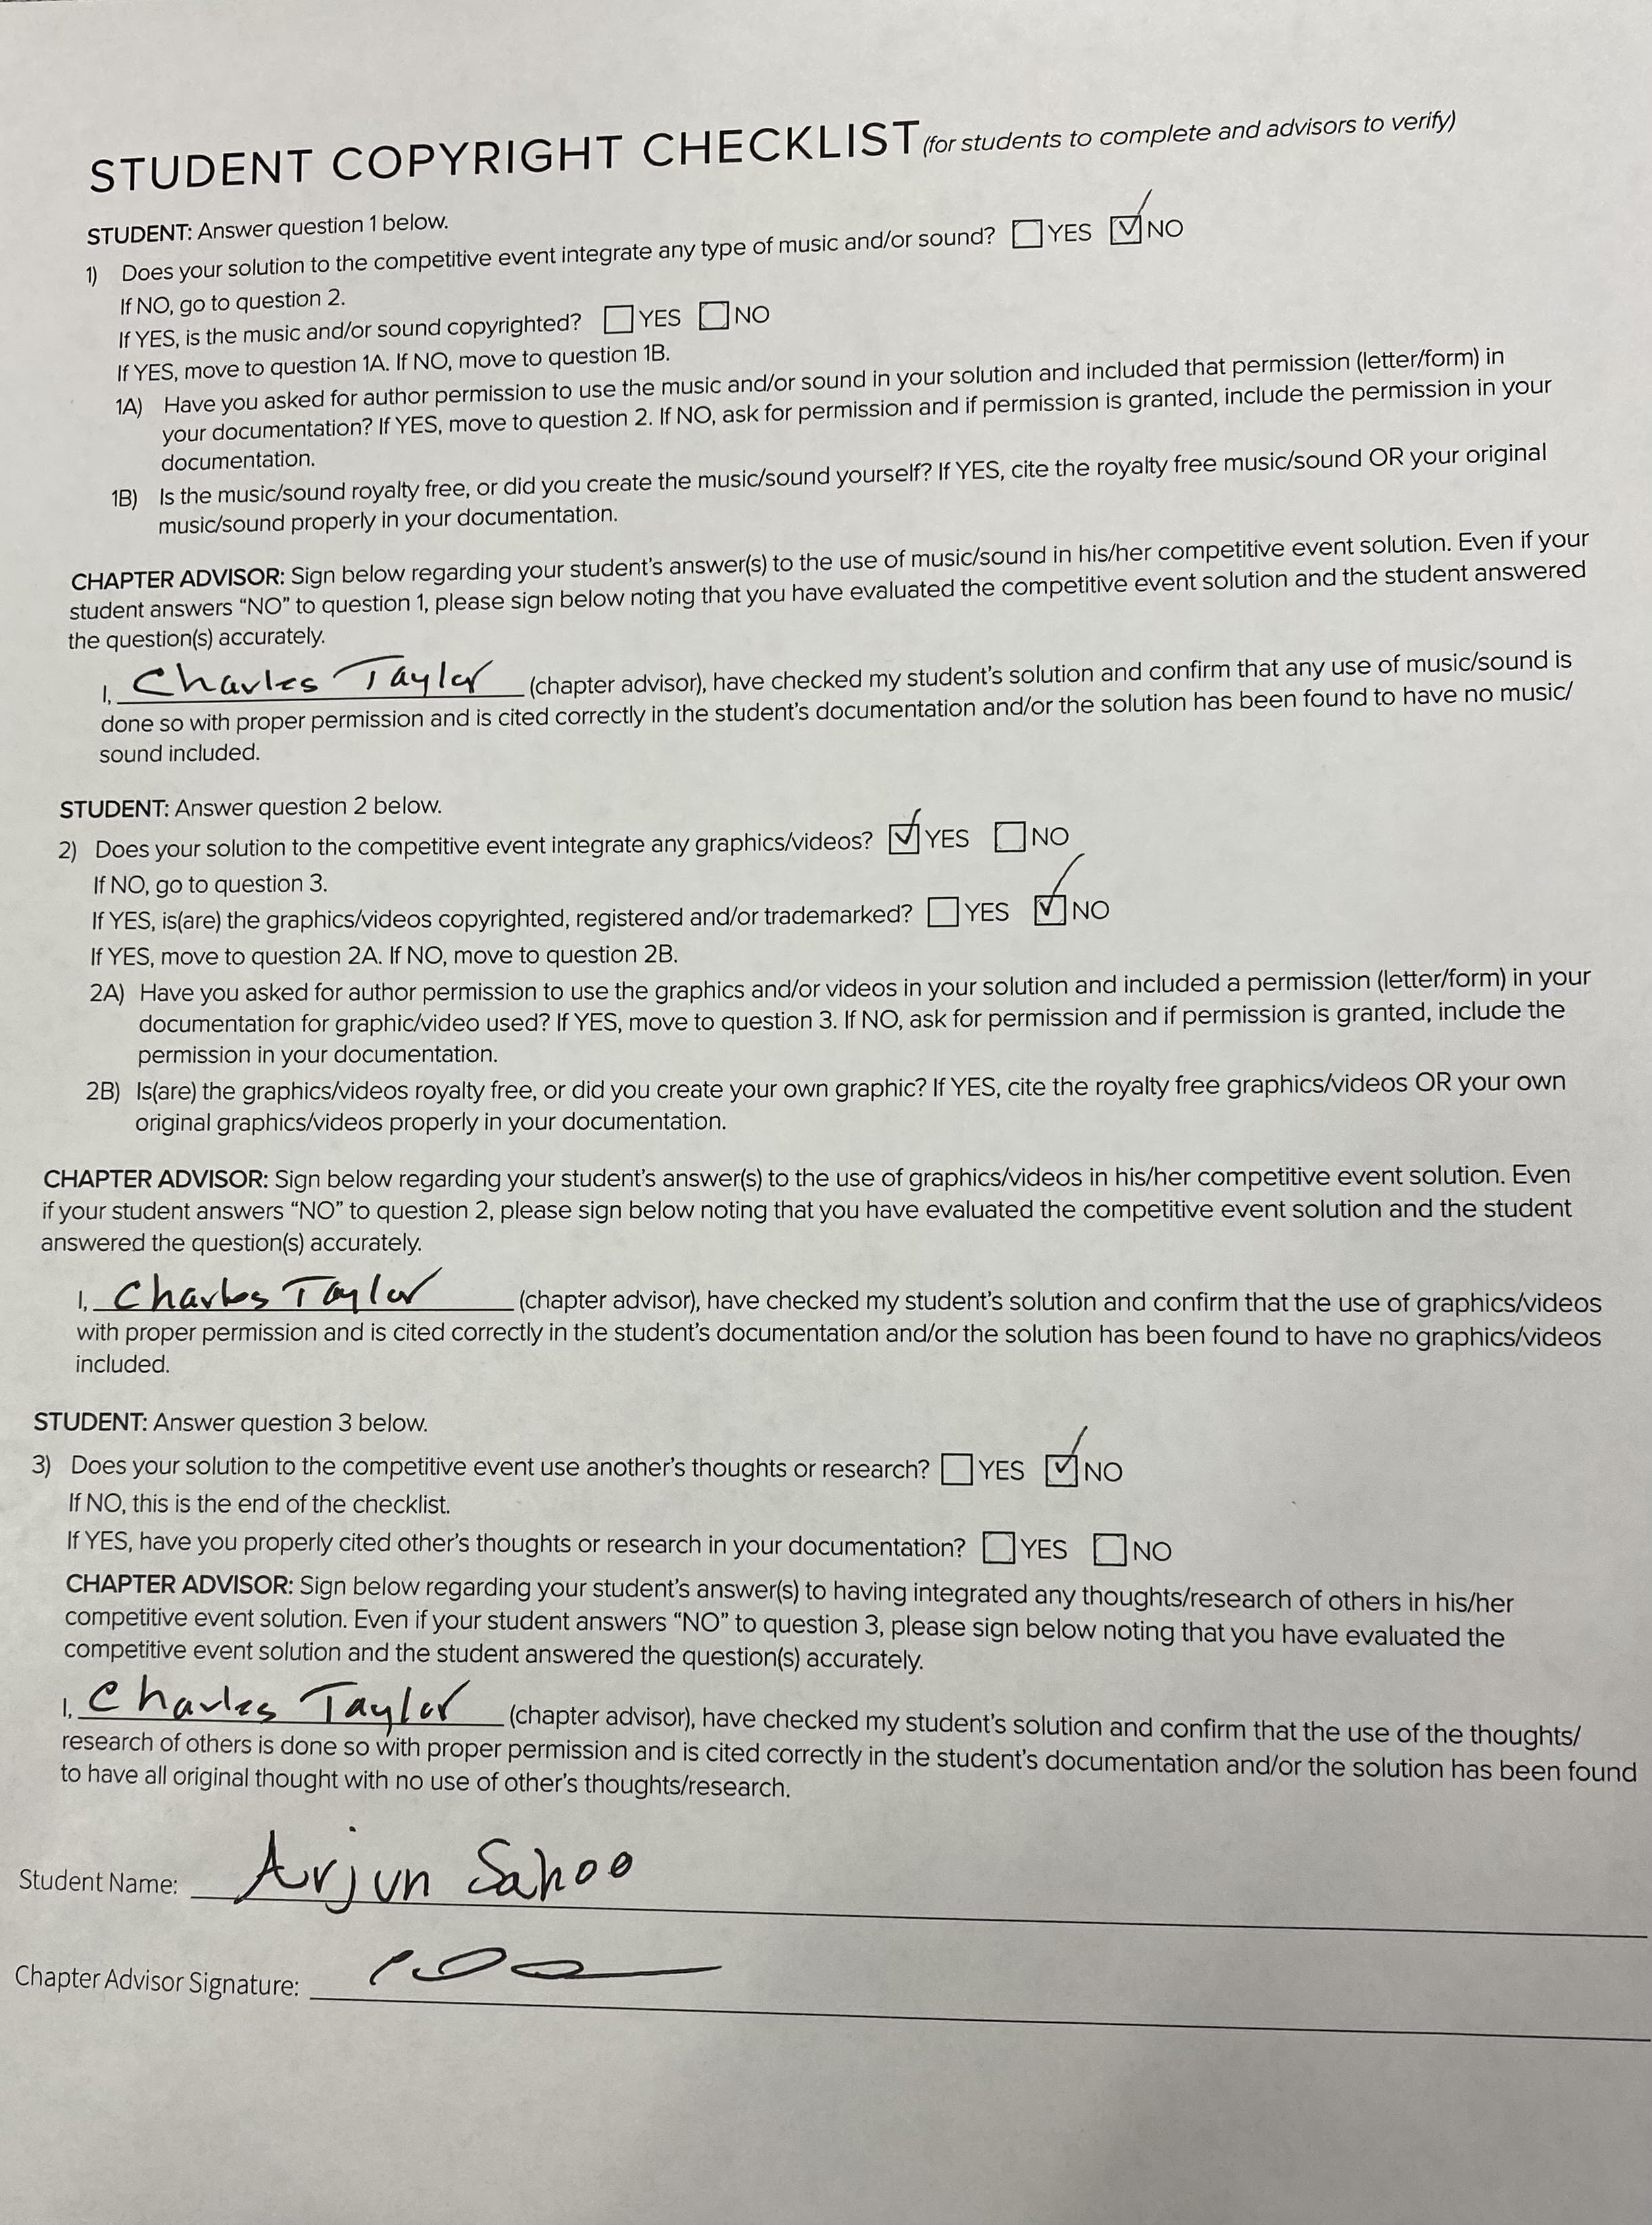 STUDENT COPYRIGHT CHECKLIST (for students to complete and advisors to verify)
STUDENT: Answer question 1 below.
1) Does your solution to the competitive event integrate any type of music and/or sound? ☐ YES ☑ NO
If NO, go to question 2.
If YES, is the music and/or sound copyrighted? ☐ YES ☐ NO
If YES, move to question 1A. If NO, move to question 1B.
1A) Have you asked for author permission to use the music and/or sound in your solution and included that permission (letter/form) in
your documentation? If YES, move to question 2. If NO, ask for permission and if permission is granted, include the permission in your
documentation.
1B) Is the music/sound royalty free, or did you create the music/sound yourself? If YES, cite the royalty free music/sound OR your original
music/sound properly in your documentation.
CHAPTER ADVISOR: Sign below regarding your student's answer(s) to the use of music/sound in his/her competitive event solution. Even if your
student answers “NO” to question 1, please sign below noting that you have evaluated the competitive event solution and the student answered
the question(s) accurately.
I, Charles Taylor (chapter advisor), have checked my student's solution and confirm that any use of music/sound is
done so with proper permission and is cited correctly in the student's documentation and/or the solution has been found to have no music/
sound included.
STUDENT: Answer question 2 below.
2) Does your solution to the competitive event integrate any graphics/videos? ☑ YES ☐ NO
If NO, go to question 3.
If YES, is(are) the graphics/videos copyrighted, registered and/or trademarked? ☐ YES ☑ NO
If YES, move to question 2A. If NO, move to question 2B.
2A) Have you asked for author permission to use the graphics and/or videos in your solution and included a permission (letter/form) in your
documentation for graphic/video used? If YES, move to question 3. If NO, ask for permission and if permission is granted, include the
permission in your documentation.
2B) Is(are) the graphics/videos royalty free, or did you create your own graphic? If YES, cite the royalty free graphics/videos OR your own
original graphics/videos properly in your documentation.
CHAPTER ADVISOR: Sign below regarding your student's answer(s) to the use of graphics/videos in his/her competitive event solution. Even
if your student answers “NO” to question 2, please sign below noting that you have evaluated the competitive event solution and the student
answered the question(s) accurately.
I, Charles Taylor (chapter advisor), have checked my student's solution and confirm that the use of graphics/videos
with proper permission and is cited correctly in the student's documentation and/or the solution has been found to have no graphics/videos
included.
STUDENT: Answer question 3 below.
3) Does your solution to the competitive event use another's thoughts or research? ☐ YES ☑ NO
If NO, this is the end of the checklist.
If YES, have you properly cited other's thoughts or research in your documentation? ☐ YES ☐ NO
CHAPTER ADVISOR: Sign below regarding your student's answer(s) to having integrated any thoughts/research of others in his/her
competitive event solution. Even if your student answers “NO” to question 3, please sign below noting that you have evaluated the
competitive event solution and the student answered the question(s) accurately.
I, Charles Taylor (chapter advisor), have checked my student's solution and confirm that the use of the thoughts/
research of others is done so with proper permission and is cited correctly in the student's documentation and/or the solution has been found
to have all original thought with no use of other's thoughts/research.
Student Name: Arjun Sahoo
Chapter Advisor Signature: